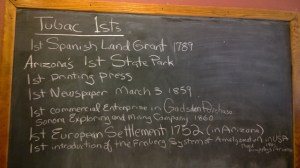 Tubac 1sts
1st Spanish Land Grant 1789
Arizona's 1st State Park
1st printing press
1st Newspaper March 3, 1859
1st commercial Enterprise in Gadsden Purchase
Sonora Exploring and Mining Company 1860
1st European Settlement 1752 (in Arizona)
1st introduction of the Freiberg System of Amalgamation in USA